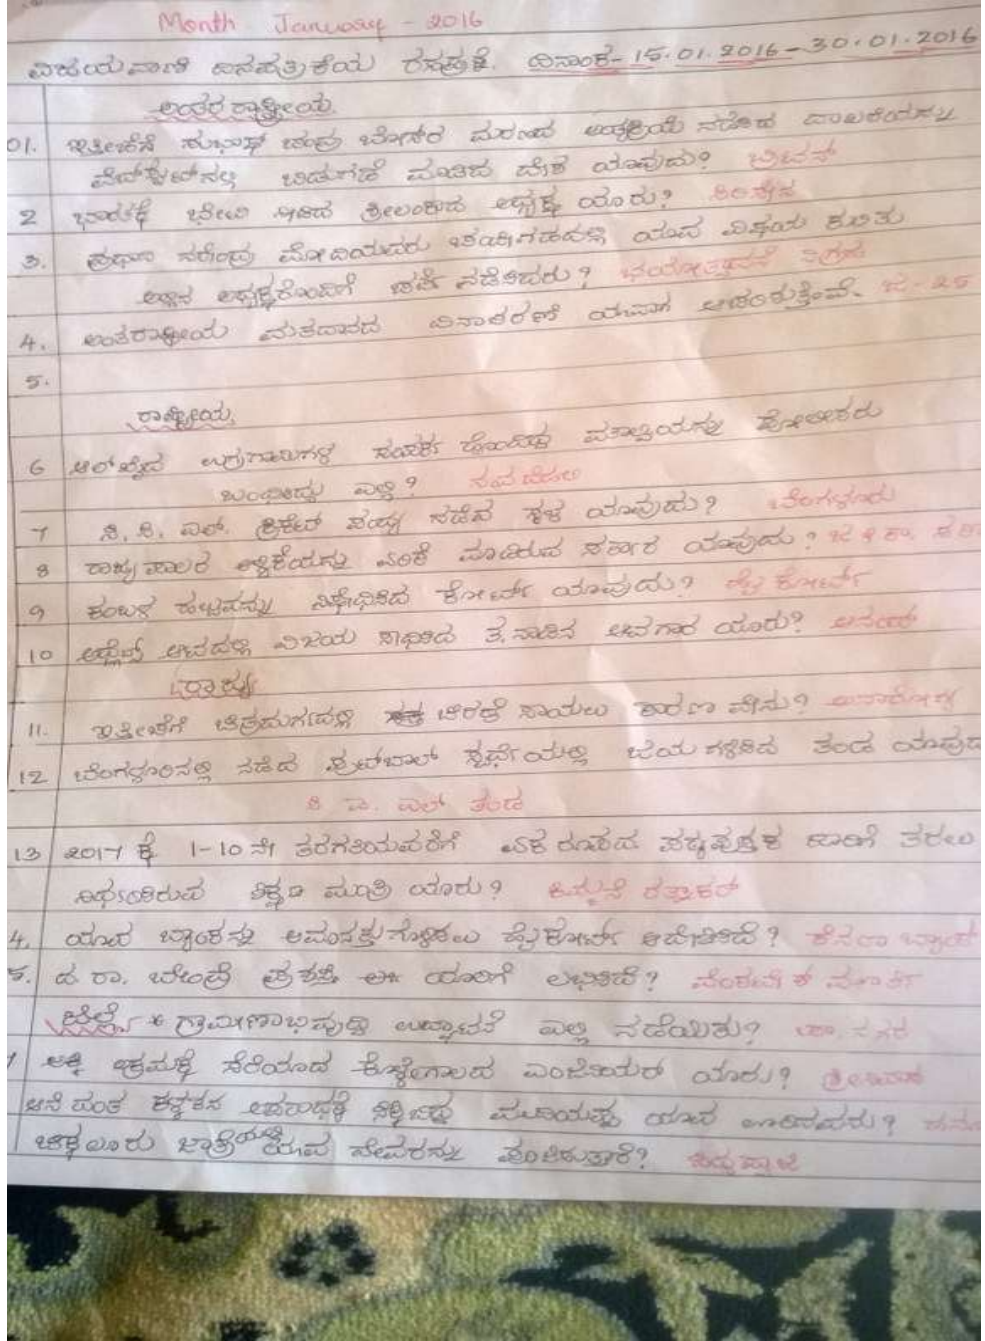 Month January - 2016
ವಿಜಯವಾಣಿ ದಿನಪತ್ರಿಕೆಯ ರಸಪ್ರಶ್ನೆ. ದಿನಾಂಕ - 15.01.2016 - 30.01.2016
ಅಂತರರಾಷ್ಟ್ರೀಯ
01. ಇತ್ತೀಚೆಗೆ ಸುಭಾಷ್ ಚಂದ್ರ ಬೋಸ್‌ರ ಮರಣದ ಅಂತ್ಯಕ್ರಿಯೆ ನಡೆಸಿದ
ವೆಬ್‌ಸೈಟ್‌ನಲ್ಲಿ ಬಿಡುಗಡೆ ಮಾಡಿದ ದೇಶ ಯಾವುದು? ಬ್ರಿಟನ್
2 ಭಾರತಕ್ಕೆ ಭೇಟಿ ನೀಡಿದ ಶ್ರೀಲಂಕಾದ ಅಧ್ಯಕ್ಷ ಯಾರು? ಸಿರಿಸೇನ
3. ಪ್ರಧಾನಿ ನರೇಂದ್ರ ಮೋದಿಯವರು ಯಾವ ವಿಷಯ ಕುರಿತು
ಅಲ್ಲಿನ ಅಧ್ಯಕ್ಷರೊಂದಿಗೆ ಚರ್ಚೆ ನಡೆಸಿದರು? ಭಯೋತ್ಪಾದನೆ ನಿಗ್ರಹ
4. ಅಂತರಾಷ್ಟ್ರೀಯ ಮತದಾನದ ದಿನಾಚರಣೆ ಯಾವಾಗ ಆಚರಿಸುತ್ತೇವೆ. ಜ - 25
5.
ರಾಷ್ಟ್ರೀಯ
6 ಉಗ್ರಗಾಮಿಗಳ ಸಂಪರ್ಕ ಹೊಂದಿದ್ದ ಪೋಲೀಸರು
ಬಂಧಿಸಿದ್ದು ಎಲ್ಲಿ? ನವದೆಹಲಿ
7 ಸಿ. ಸಿ. ಎಲ್. ಕ್ರಿಕೆಟ್ ಪಂದ್ಯ ನಡೆದ ಸ್ಥಳ ಯಾವುದು? ಬೆಂಗಳೂರು
8 ರಾಜ್ಯಪಾಲರ ಆಳ್ವಿಕೆಯನ್ನು ಏರಿಕೆ ಮಾಡಿರುವ ಸರ್ಕಾರ ಯಾವುದು?
9 ಕಂಬಳ ಹಬ್ಬವನ್ನು ನಿಷೇಧಿಸಿದ ಕೋರ್ಟ್ ಯಾವುದು? ಹೈ ಕೋರ್ಟ್
10 ಆಟದಲ್ಲಿ ವಿಜಯ ಸಾಧಿಸಿದ ತ. ನಾಡಿನ ಆಟಗಾರ ಯಾರು? ಆನಂದ್
ರಾಜ್ಯ
11. ಇತ್ತೀಚೆಗೆ ಚಿತ್ರದುರ್ಗದಲ್ಲಿ ಚಿರತೆ ಸಾಯಲು ಕಾರಣ ವೇನು? ಅನಾರೋಗ್ಯ
12 ಬೆಂಗಳೂರಿನಲ್ಲಿ ನಡೆದ ಫುಟ್‌ಬಾಲ್ ಸ್ಪರ್ಧೆಯಲ್ಲಿ ಜಯ ಗಳಿಸಿದ ತಂಡ ಯಾವುದು
ಎಲ್ ತಂಡ
13 2017 ಕ್ಕೆ 1-10 ನೇ ತರಗತಿಯವರೆಗೆ ಏಕ ರೂಪದ ಪಠ್ಯಪುಸ್ತಕ ಜಾರಿಗೆ ತರಲು
ನಿರ್ಧರಿಸಿರುವ ಶಿಕ್ಷಣ ಮಂತ್ರಿ ಯಾರು? ಕಿಮ್ಮನೆ ರತ್ನಾಕರ್
4. ಯಾವ ಬ್ಯಾಂಕನ್ನು ಅಮಾನತ್ತುಗೊಳಿಸಲು ಹೈಕೋರ್ಟ್ ಆದೇಶಿಸಿದೆ? ಕೆನರಾ ಬ್ಯಾಂಕ್
5. ದ. ರಾ. ಬೇಂದ್ರೆ ಪ್ರಶಸ್ತಿ ಯಾರಿಗೆ ಲಭಿಸಿದೆ?
ಜಿಲ್ಲೆ * ಗ್ರಾಮೀಣಾಭಿವೃದ್ಧಿ ಉದ್ಘಾಟನೆ ಎಲ್ಲಿ ನಡೆಯಿತು? ಚಾ. ನಗರ
ಅಕ್ರಮಕ್ಕೆ ಸೆರೆಯಾದ ಕೊಳ್ಳೇಗಾಲದ ಎಂಜಿನಿಯರ್ ಯಾರು?
ಆನೆ ದಂತ ಯಾವ ಊರಿನವರು?
ಚಿಕ್ಕಲೂರು ಜಾತ್ರೆಯಲ್ಲಿ ಯಾವ ದೇವರನ್ನು ಪೂಜಿಸುತ್ತಾರೆ? ಸಿದ್ದಪ್ಪಾಜಿ